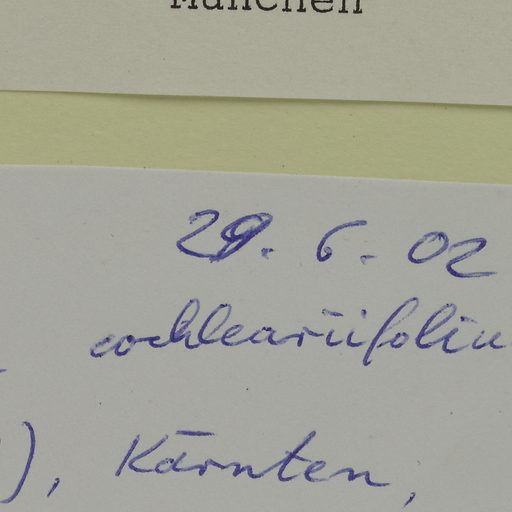 München
29. 6. 02
cochleariifoliu
), Kärnten,